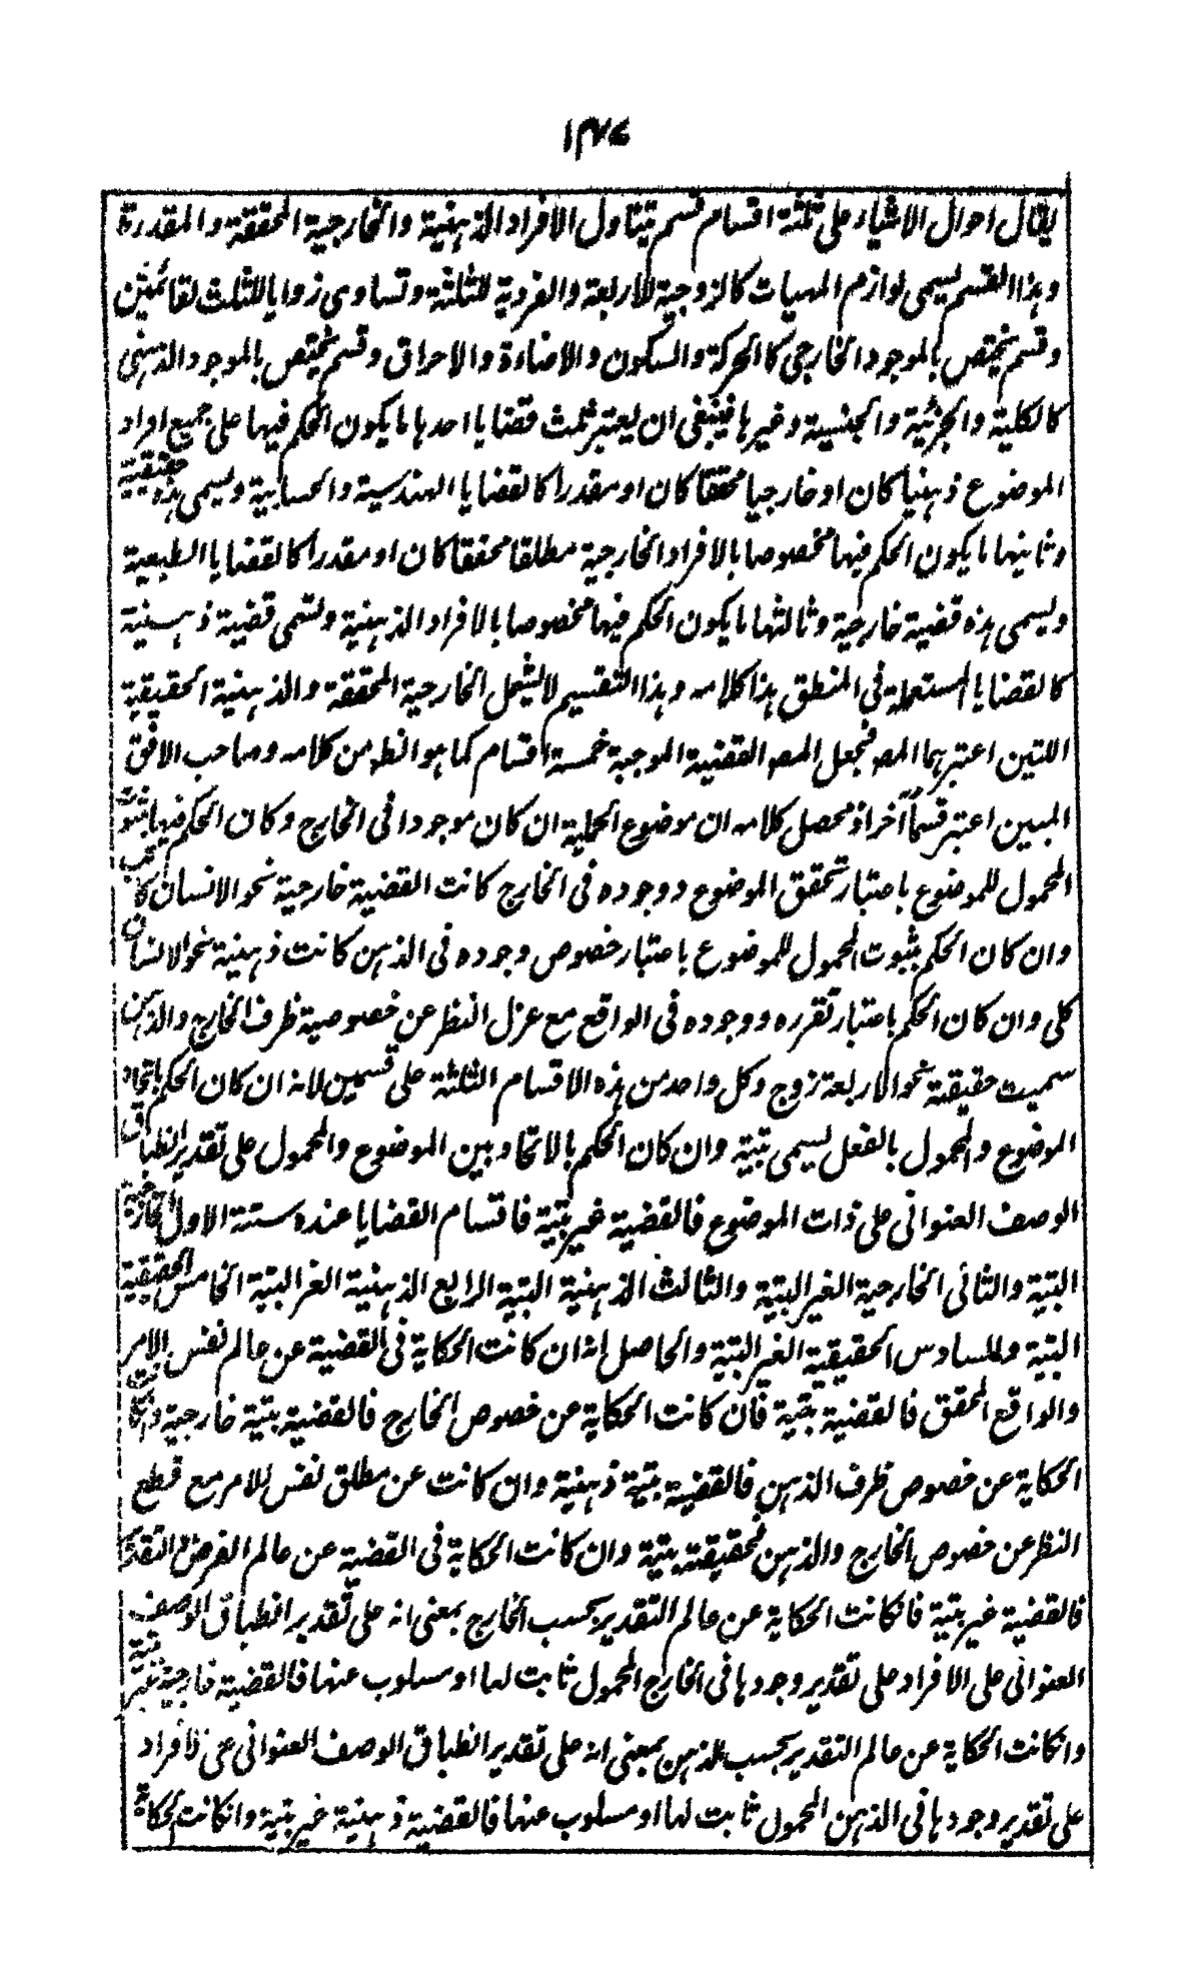 ١٣٧
يقال احوال الاشياء على ثلثة اقسام قسم يتناول الافراد الذهنية والخارجية المحققة والمقدرة
وهذا القسم يسمى لوازم المهيات كالزوجية للاربعة والفردية للثلثة وتساوى زوايا المثلث لقائمتين
وقسم يختص بالموجود الخارجى كالحركة والسكون والاضاءة والاحراق وقسم يختص بالموجود الذهنى
كالكلية والجزئية والجنسية وغيرها فينبغى ان يعتبر ثلث قضايا احدها ما يكون الحكم فيها على جميع افراد
الموضوع ذهنيا كان او خارجيا محققا كان او مقدرا كالقضايا الهندسية والحسابية ويسمى هذه حقيقية
وثانيها ما يكون الحكم فيها مخصوصا بالافراد الخارجية مطلقا محققا كان او مقدرا كالقضايا الطبعية
ويسمى هذه قضية خارجية وثالثها ما يكون الحكم فيها مخصوصا بالافراد الذهنية ولتسمى قضية ذهنية
كالقضايا المستعملة فى المنطق هذا كلامه وهذا التقسيم لا يشمل الخارجية المحققة والذهنية الحقيقية
اللتين اعتبرهما المصـ فجعل المصـ القضية الموجبة خمسة اقسام كما هو الظـ من كلامه وصاحب الافق
المبين اعتبر قسماً آخر اذ محصل كلامه ان موضوع الحملية ان كان موجودا فى الخارج وكان الحكم فيها بثبوت
المحمول للموضوع باعتبار تحقق الموضوع ووجوده فى الخارج كانت القضية خارجية نحو الانسان كاتب
وان كان الحكم بثبوت المحمول للموضوع باعتبار خصوص وجوده فى الذهن كانت ذهنية نحو الانسان
كلى وان كان الحكم باعتبار تقرره ووجوده فى الواقع مع عزل النظر عن خصوصية ظرف الخارج والذهن
سميت حقيقة نحو الاربعة زوج وكل واحد من هذه الاقسام الثلثة على قسمين لانه ان كان الحكم باتحاد
الموضوع والمحمول بالفعل يسمى بتية وان كان الحكم بالاتحاد بين الموضوع والمحمول على تقدير انطباق
الوصف العنوانى على ذات الموضوع فالقضية غير بتية فاقسام القضايا عنده ستة الاول الخارجية
البتية والثانى الخارجية الغير البتية والثالث الذهنية البتية الرابع الذهنية الغير البتية الخامس الحقيقية
البتية والسادس الحقيقية الغير البتية والحاصل انه ان كانت الحكاية فى القضية عن عالم نفس الامر
والواقع المحقق فالقضية بتية فان كانت الحكاية عن خصوص الخارج فالقضية بتية خارجية وان كانت
الحكاية عن خصوص ظرف الذهن فالقضية بتية ذهنية وان كانت عن مطلق نفس الامر مع قطع
النظر عن خصوص الخارج والذهن فحقيقة بتية وان كانت الحكاية فى القضية عن عالم الفرض والتقدير
فالقضية غير بتية فانكانت الحكاية عن عالم التقدير بحسب الخارج بمعنى انه على تقدير انطباق الوصف
العنوانى على الافراد على تقدير وجودها فى الخارج المحمول ثابت لها او مسلوب عنها فالقضية خارجية غير بتية
وانكانت الحكاية عن عالم التقدير بحسب الذهن بمعنى انه على تقدير انطباق الوصف العنوانى على الافراد
على تقدير وجودها فى الذهن المحمول ثابت لها او مسلوب عنها فالقضية ذهنية غير بتية وانكانت الحكاية